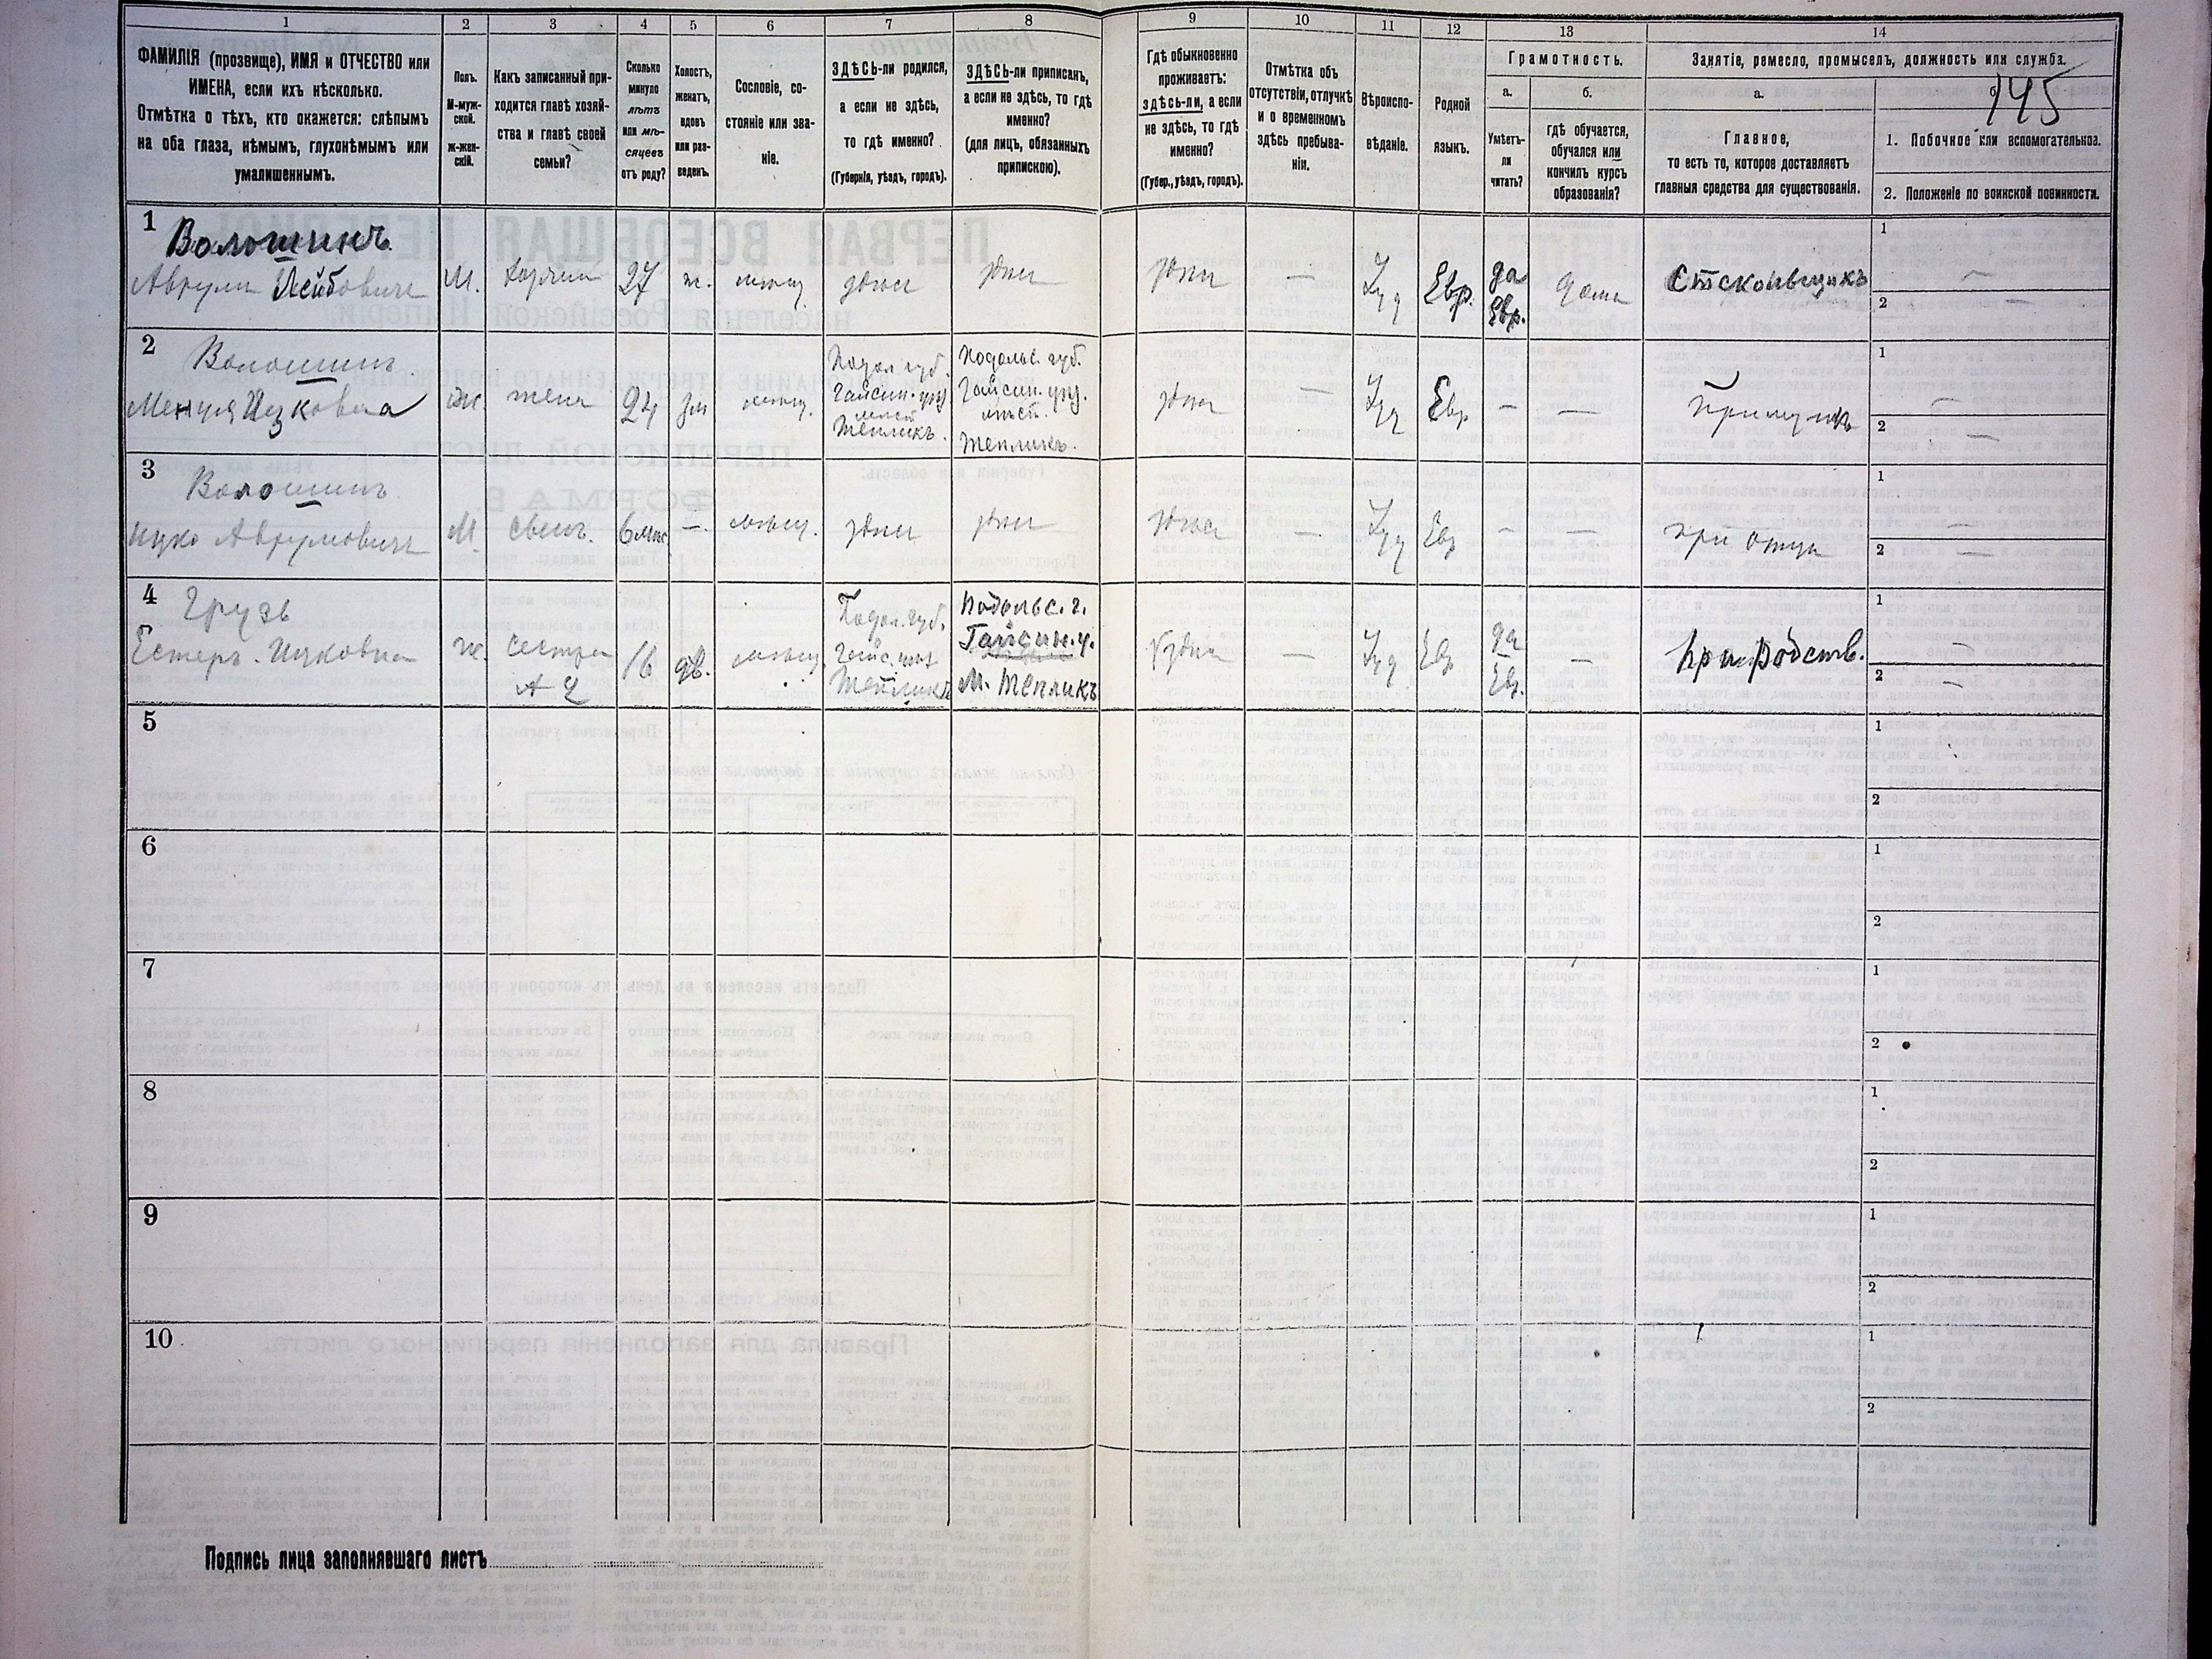 1 2 3 4 5 6 7 8 9 10 11 12 13 14
ФАМИЛІЯ (прозвище), ИМЯ и ОТЧЕСТВО или
ИМЕНА, если ихъ нѣсколько.
Отмѣтка о тѣхъ, кто окажется: слѣпымъ
на оба глаза, нѣмымъ, глухонѣмымъ или
умалишеннымъ.
Полъ.
М-муж-
ской.
Ж-жен-
скій.
Какъ записанный при-
ходится главѣ хозяй-
ства и главѣ своей
семьи?
Сколько
минуло
лѣтъ
или мѣ-
сяцевъ
отъ роду?
Холостъ,
женатъ,
вдовъ
или раз-
веденъ.
Сословіе, со-
стояніе или зва-
ніе.
ЗДѢСЬ-ли родился,
а если не здѣсь,
то гдѣ именно?
(Губернія, уѣздъ, городъ).
ЗДѢСЬ-ли приписанъ,
а если не здѣсь, то гдѣ
именно?
(для лицъ, обязанныхъ
припискою).
Гдѣ обыкновенно
проживаетъ:
здѣсь-ли, а если
не здѣсь, то гдѣ
именно?
(Губер., уѣздъ, городъ).
Отмѣтка объ
отсутствіи, отлучкѣ
и о временномъ
здѣсь пребыва-
ніи.
Вѣроиспо-
вѣданіе.
Родной
языкъ.
Грамотность.
а.
Умѣетъ-
ли
читать?
б.
гдѣ обучается,
обучался или
кончилъ курсъ
образованія?
Занятіе, ремесло, промыселъ, должность или служба.
а.
Главное,
то есть то, которое доставляетъ
главныя средства для существованія.
б
145
1. Побочное или вспомогательное.
2. Положеніе по воинской повинности.
1
Волошинъ
Аврумъ Лейбовичъ
М.
хозяин
27
ж.
мѣщ.
здѣсь
здѣсь
здѣсь
—
Іуд
Евр.
да
Евр.
дома
Стекольщикъ
1 —
2 —
2
Волошинъ
Ицковна
ж.
жена
24
зм
мѣщ.
Подол. губ.
Гайсин. уѣз
мѣст
Тепликъ.
Подольс. губ.
Гайсин. уѣз.
мѣст.
Тепликъ.
здѣсь
—
Іуд
Евр.
—
—
При мужѣ
1 —
2 —
3
Волошинъ
Ицко Аврумовичъ
М
сынъ.
6 мѣс
—.
мѣщ.
здѣсь
здѣсь
здѣсь
—
Іуд
Евр
—
—
при отцѣ
1 —
2 —
4
Грузь
Естеръ. Ицковна
ж.
сестра
2
16
дв.
мѣщ.
Подол. губ.
Гайс. уѣз
Тепликъ
Подольс. г.
Гайсин. у.
м. Тепликъ
здѣсь
—
Іуд
Евр
да
Евр.
—
При родств.
1 —
2 —
5
1
2
6
1
2
7
1
2
8
1
2
9
1
2
10
1
2
Подпись лица заполнявшаго листъ